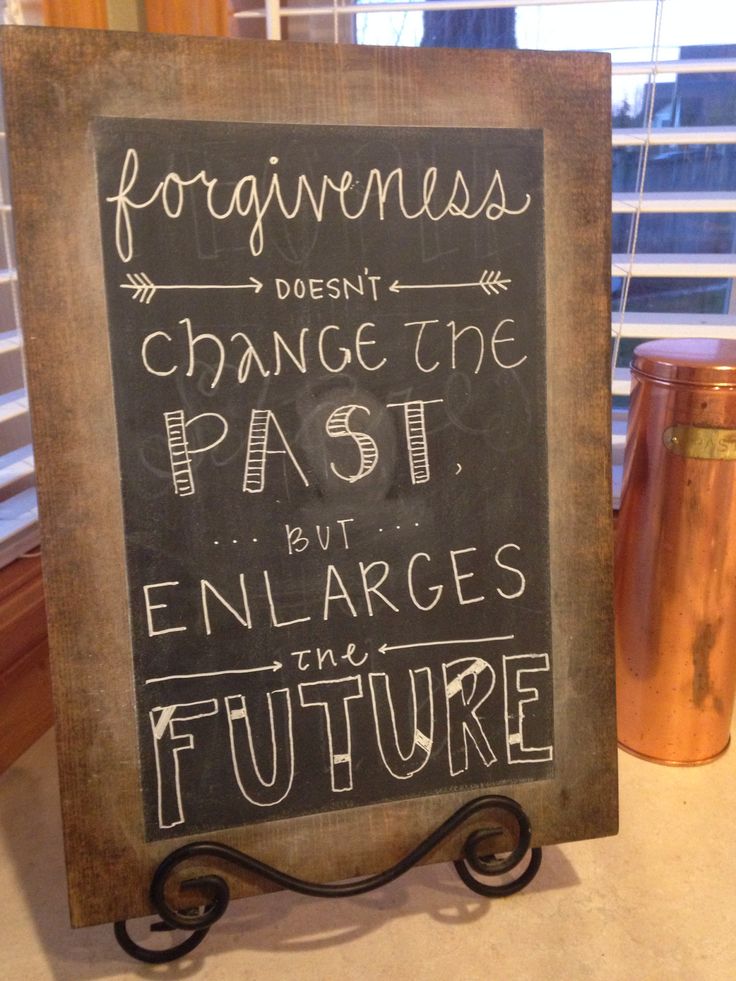 forgiveness
DOESN'T
CHANGE THE
PAST,
... BUT ...
ENLARGES
the
FUTURE